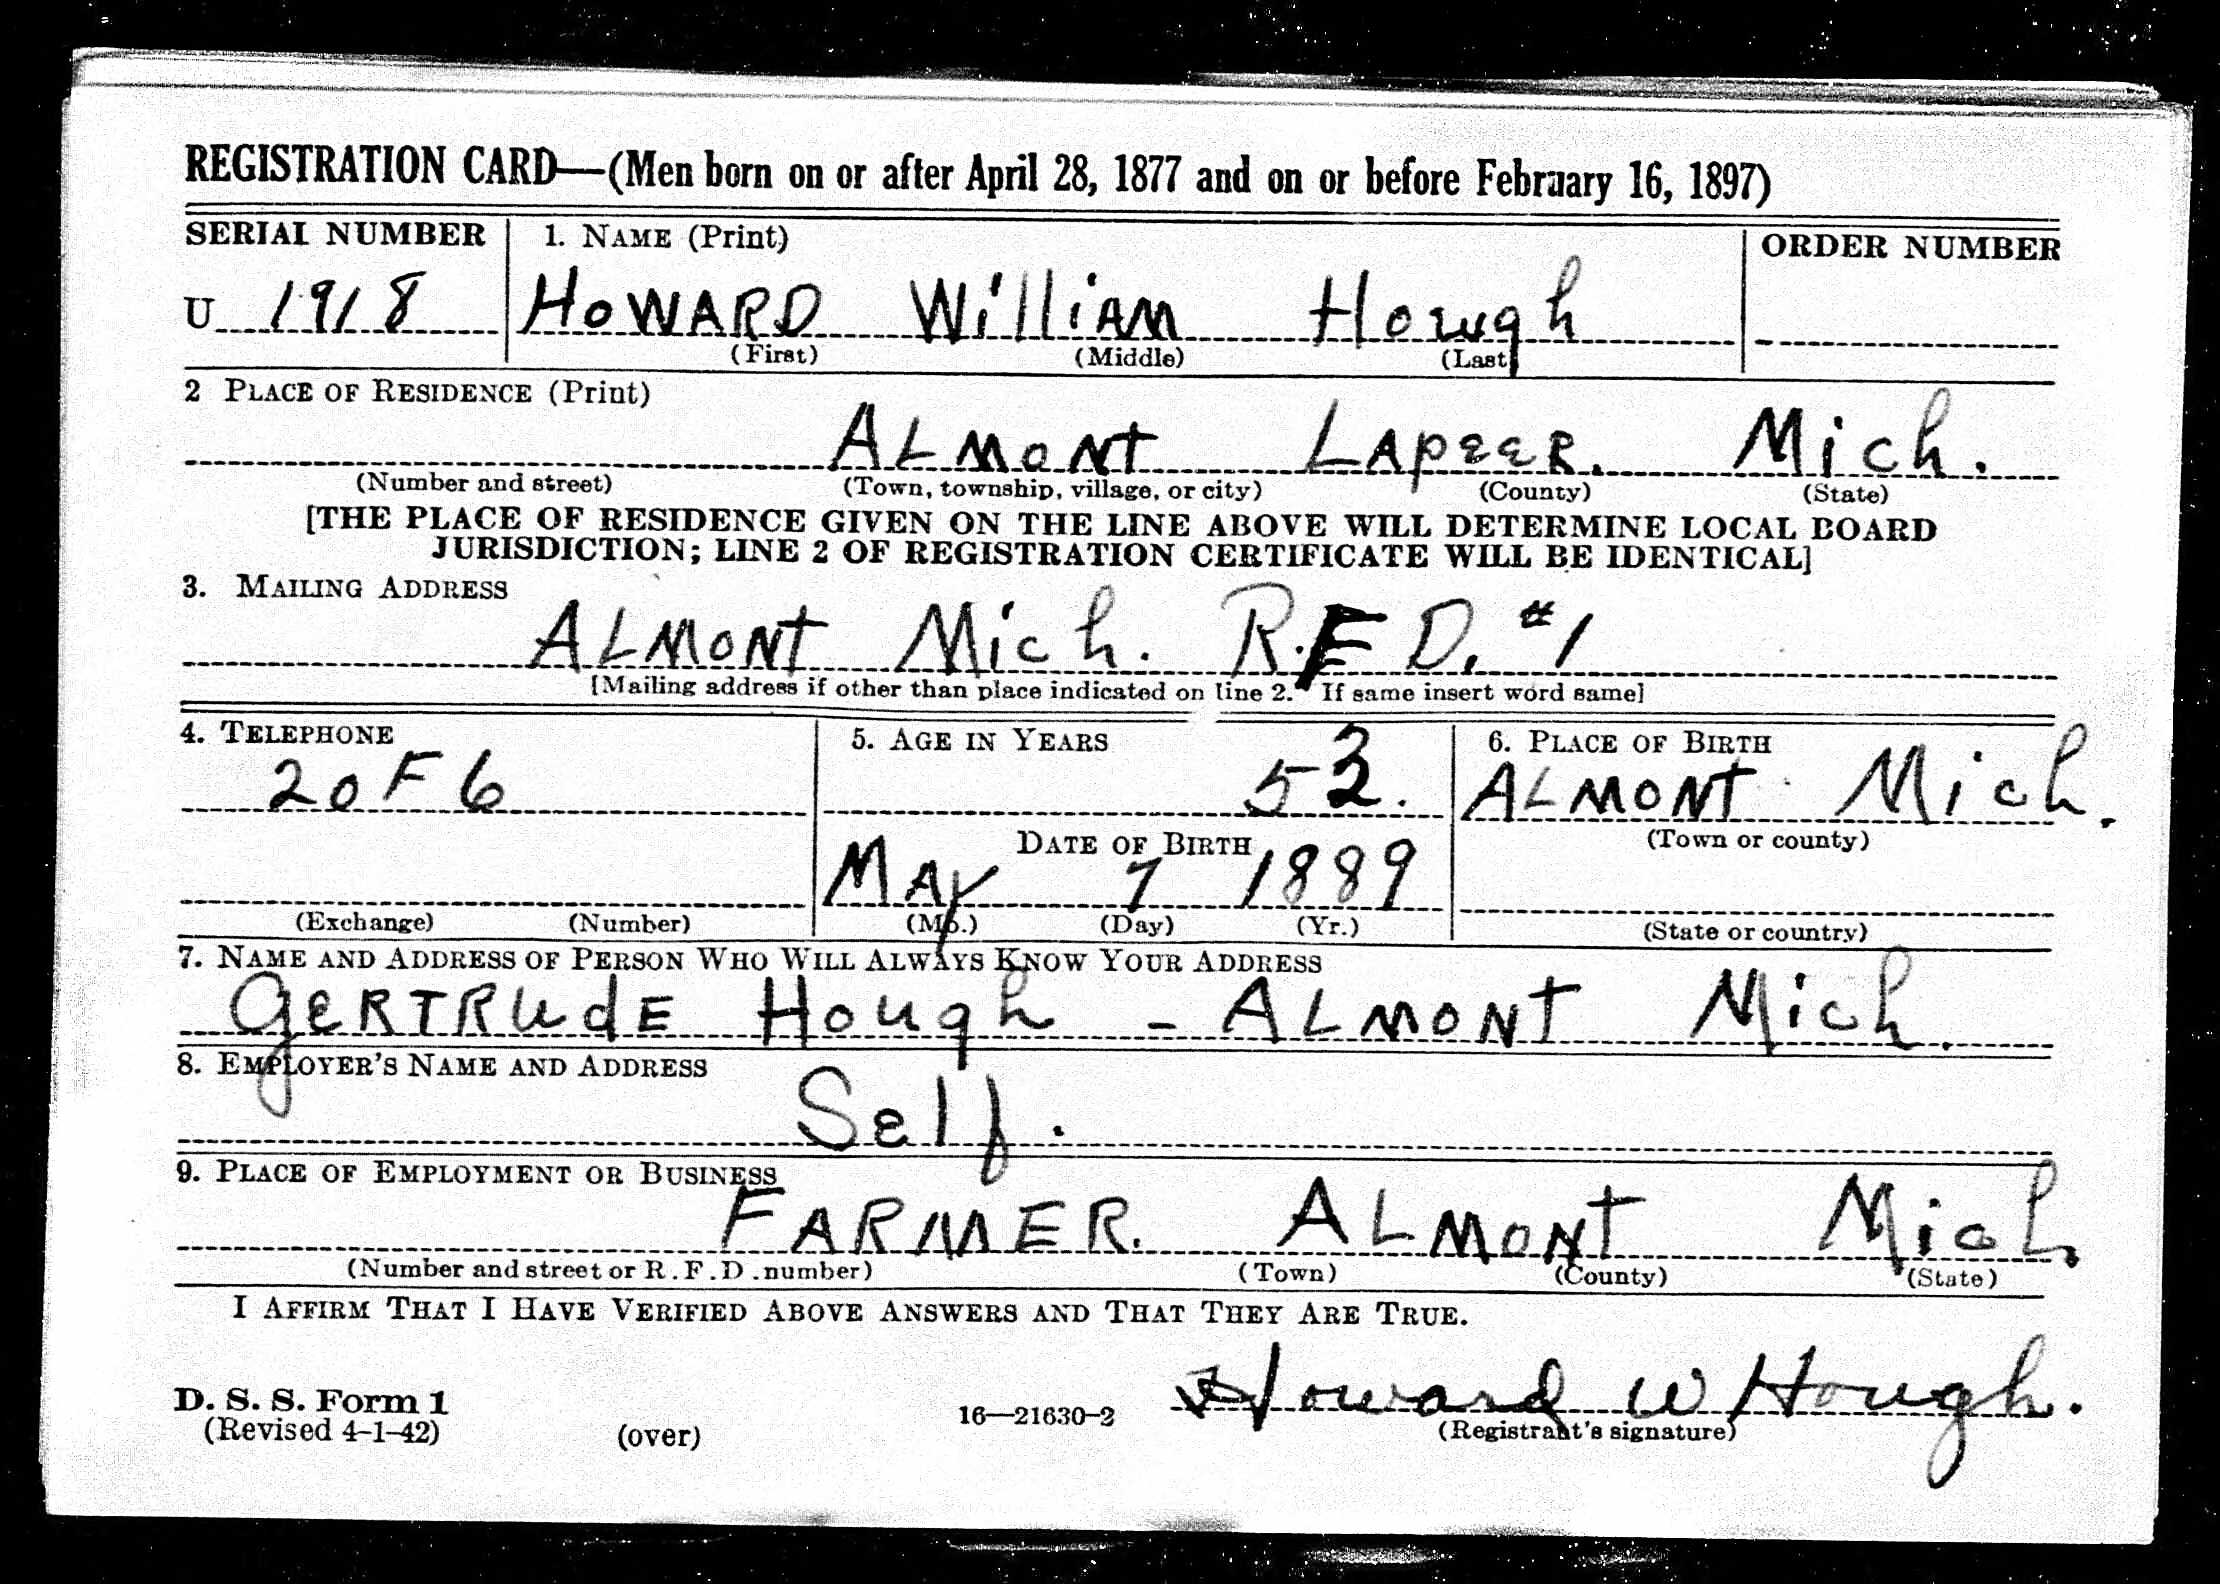 REGISTRATION CARD—(Men born on or after April 28, 1877 and on or before February 16, 1897)
SERIAL NUMBER 1. NAME (Print) ORDER NUMBER
U 1918 HOWARD William Hough
(First) (Middle) (Last)
2 PLACE OF RESIDENCE (Print)
ALMONT LAPEER. Mich.
(Number and street) (Town, township, village, or city) (County) (State)
[THE PLACE OF RESIDENCE GIVEN ON THE LINE ABOVE WILL DETERMINE LOCAL BOARD
JURISDICTION; LINE 2 OF REGISTRATION CERTIFICATE WILL BE IDENTICAL]
3. MAILING ADDRESS
ALMONT Mich. R.F.D. #1
[Mailing address if other than place indicated on line 2. If same insert word same]
4. TELEPHONE 5. AGE IN YEARS 6. PLACE OF BIRTH
20F6 53. ALMONT Mich.
DATE OF BIRTH (Town or county)
MAY 7 1889
(Exchange) (Number) (Mo.) (Day) (Yr.) (State or country)
7. NAME AND ADDRESS OF PERSON WHO WILL ALWAYS KNOW YOUR ADDRESS
GERTRUdE Hough - ALMONT Mich.
8. EMPLOYER'S NAME AND ADDRESS
Self.
9. PLACE OF EMPLOYMENT OR BUSINESS
FARMER. ALMONT Mich.
(Number and street or R.F.D. number) (Town) (County) (State)
I AFFIRM THAT I HAVE VERIFIED ABOVE ANSWERS AND THAT THEY ARE TRUE.
Howard W Hough.
D. S. S. Form 1
(Revised 4-1-42) (over) 16—21630-2 (Registrant's signature)